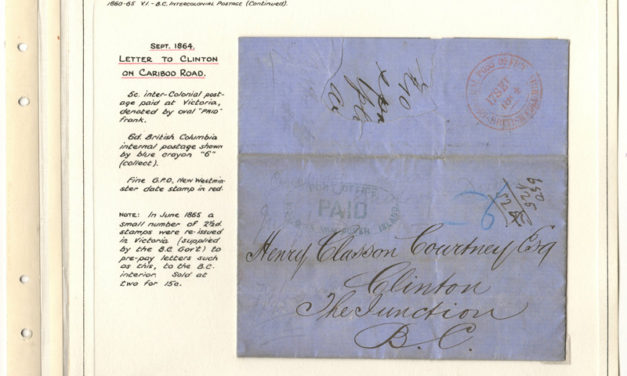 1860-65 V.I.-B.C. INTERCOLONIAL POSTAGE (CONTINUED).
SEPT. 1864.
LETTER TO CLINTON
ON CARIBOO ROAD.
5c. inter-Colonial post-
age paid at Victoria,
denoted by oval "PAID"
frank.
6d. British Columbia
internal postage shown
by blue crayon "6"
(collect).
Fine G.P.O. New Westmin-
ster date stamp in red.
NOTE: In June 1865 a
small number of 2½d.
stamps were re-issued
in Victoria (supplied
by the B.C. Gov't) to
pre-pay letters such
as this, to the B.C.
interior. Sold at
two for 15c.
POST OFFICE
PAID
VANCOUVER ISLAND
6
Henry Classon Courtney Esq
Clinton
The Junction
B. C.